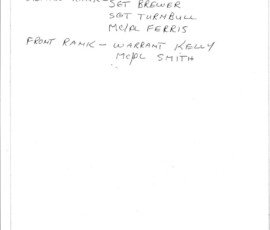 SGT BREWER
SGT TURNBULL
MCPL FERRIS
FRONT RANK – WARRANT KELLY
MCPL SMITH